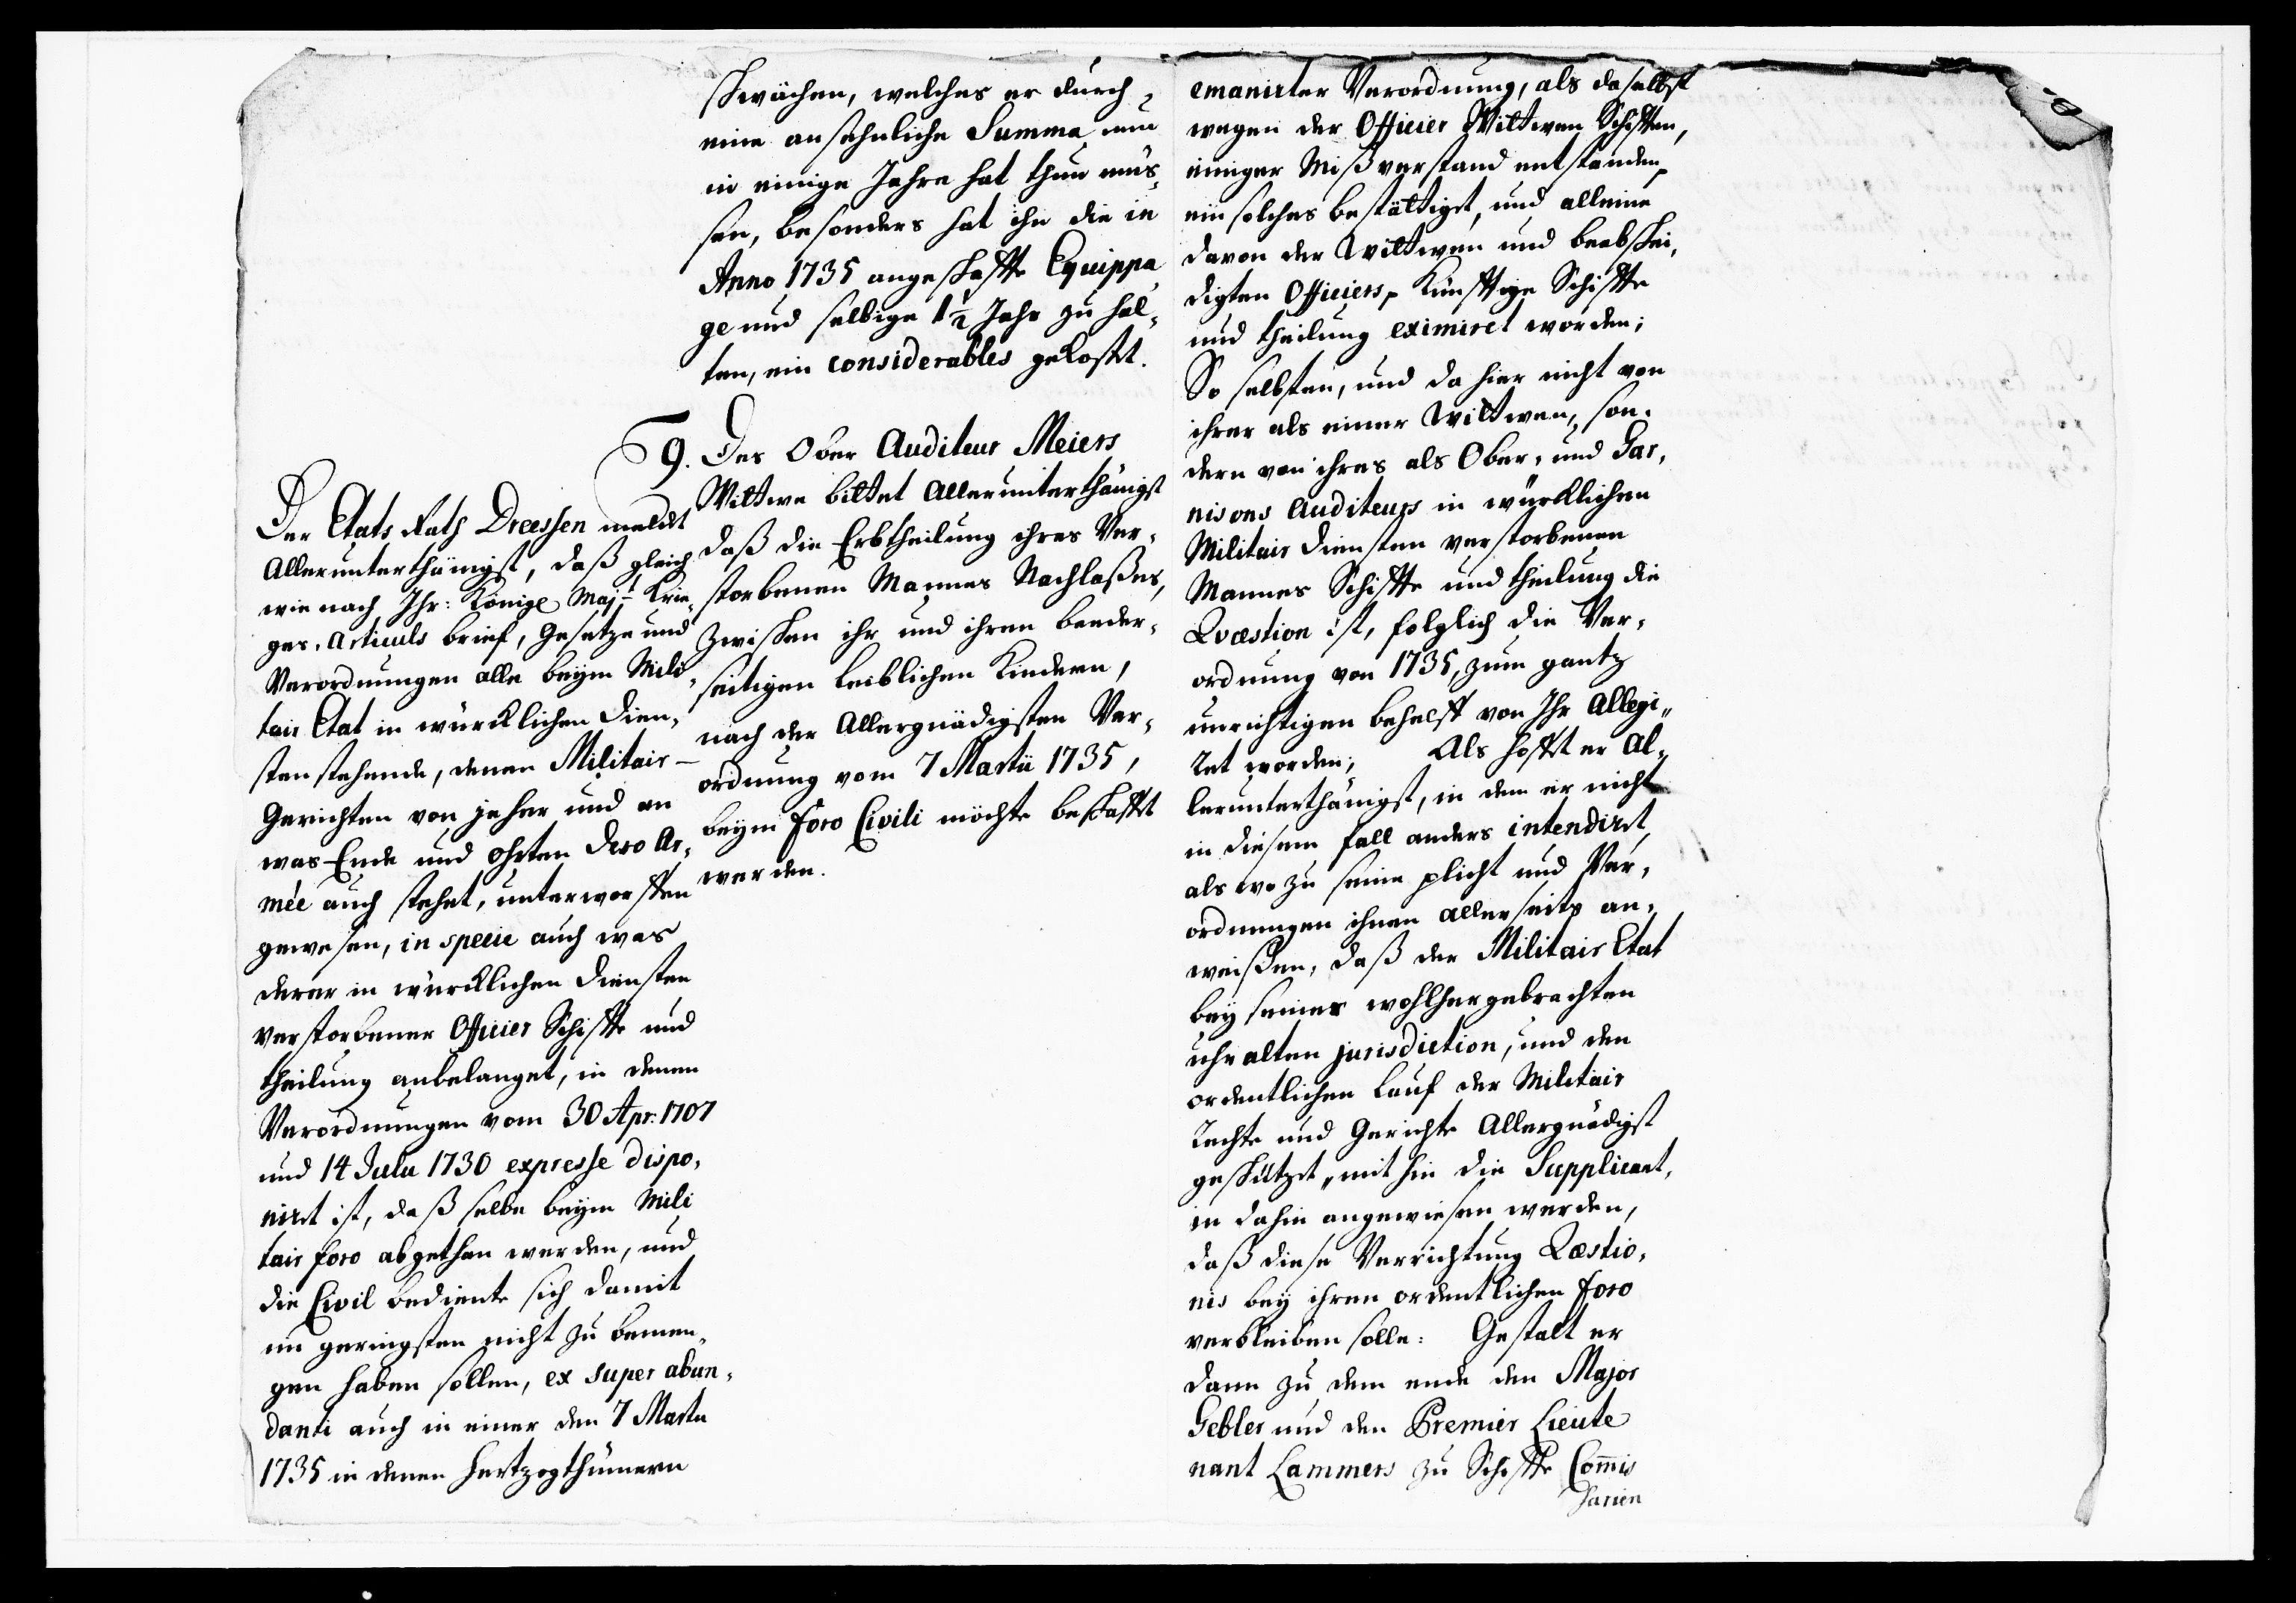 schwächen, welches er durch
eine ansehnliche Summa nun
in einige Jahre hat thun müs¬
sen, besonders hat ihn die in
Anno 1735 angeschaffte Equippa
ge und selbige 1½ Jahr zu hal¬
ten, ein considerables gekostet.
9. Des Ober Auditeur Meiers
Wittwe bittet Allerunterthänigst
daß die Erbtheilung ihres Ver¬
storbenen Mannes Nachlaßes,
zwischen ihr und ihren beeder¬
seitigen leiblichen Kindern,
nach der Allergnädigsten Ver¬
ordnung vom 7 Martii 1735,
beym foro Civili möchte beschafft
werden.
Der Etats Rath Dreessen meldet
Allerunterthänigst, daß gleich
wie nach Ihr: Königl Majt Krie¬
ges. Articuls brief, Gesetze und
Verordnungen alle beym Mili¬
tair Etat in würcklichen Dien¬
sten stehende, denen Militair
Gerichten von jeher und an
was Ende und ohrten Dero Ar¬
mée auch stehet, unterworffen
gewesen, in specie auch was
derer in würcklichen Diensten
verstorbener Officier Schiffte und
theilung anbelanget, in denen
Verordnungen vom 30 Apr: 1707
und 14 Julii 1730 expresse dispo¬
niret ist, daß selbe beym Mili
tair foro abgethan werden, und
die Civil bediente sich damit
im geringsten nicht zu bemen¬
gen haben sollen, ex super abun¬
danti auch in einer den 7 Martii
1735 in denen Hertzogthümern
emanirter Verordnung, als daselbst
wegen der Officier Wittwen Schifften,
einiger Mißverstand entstanden,
ein solches bestättiget, und alleine
davon der Wittwen und beabschei¬
digten Officiers, künfftige Schiffte
und theilung eximiret worden;
So selbsten, und da hier nicht von
ihrer als einer Wittwen, son¬
dern von ihres als Ober- und Gar¬
nisons Auditeurs in würcklichen
Militair Diensten verstorbenen
Mannes Schiffte und theilung die
Qvæstion ist, folglich die Ver¬
ordnung von 1735, zum gantz
unrichtigen behelff von Ihr Allegi¬
ret worden; Als hofft er Al¬
lerunterthänigst, in dem er nicht
in diesem fall anders intendiret,
als wo zu seine plicht und Ver¬
ordnungen ihnen allerseits an¬
weißen, daß der Militair Etat
bey seiner wohlhergebrachten
uhralten jurisdiction, und den
ordentlichen lauf der Militair
Rechte und Gerichte Allergnädigst
geschützet, mithin die Supplicant¬
in dahin angewiesen werden,
daß diese Verrichtung Qæstio¬
nis bey ihren ordentlichen foro
verbleiben solle: Gestalt er
dann zu dem ende den Major
Gebler und den Premier Lieute
nant Lammers zu Schiffte Com̄is
sarien